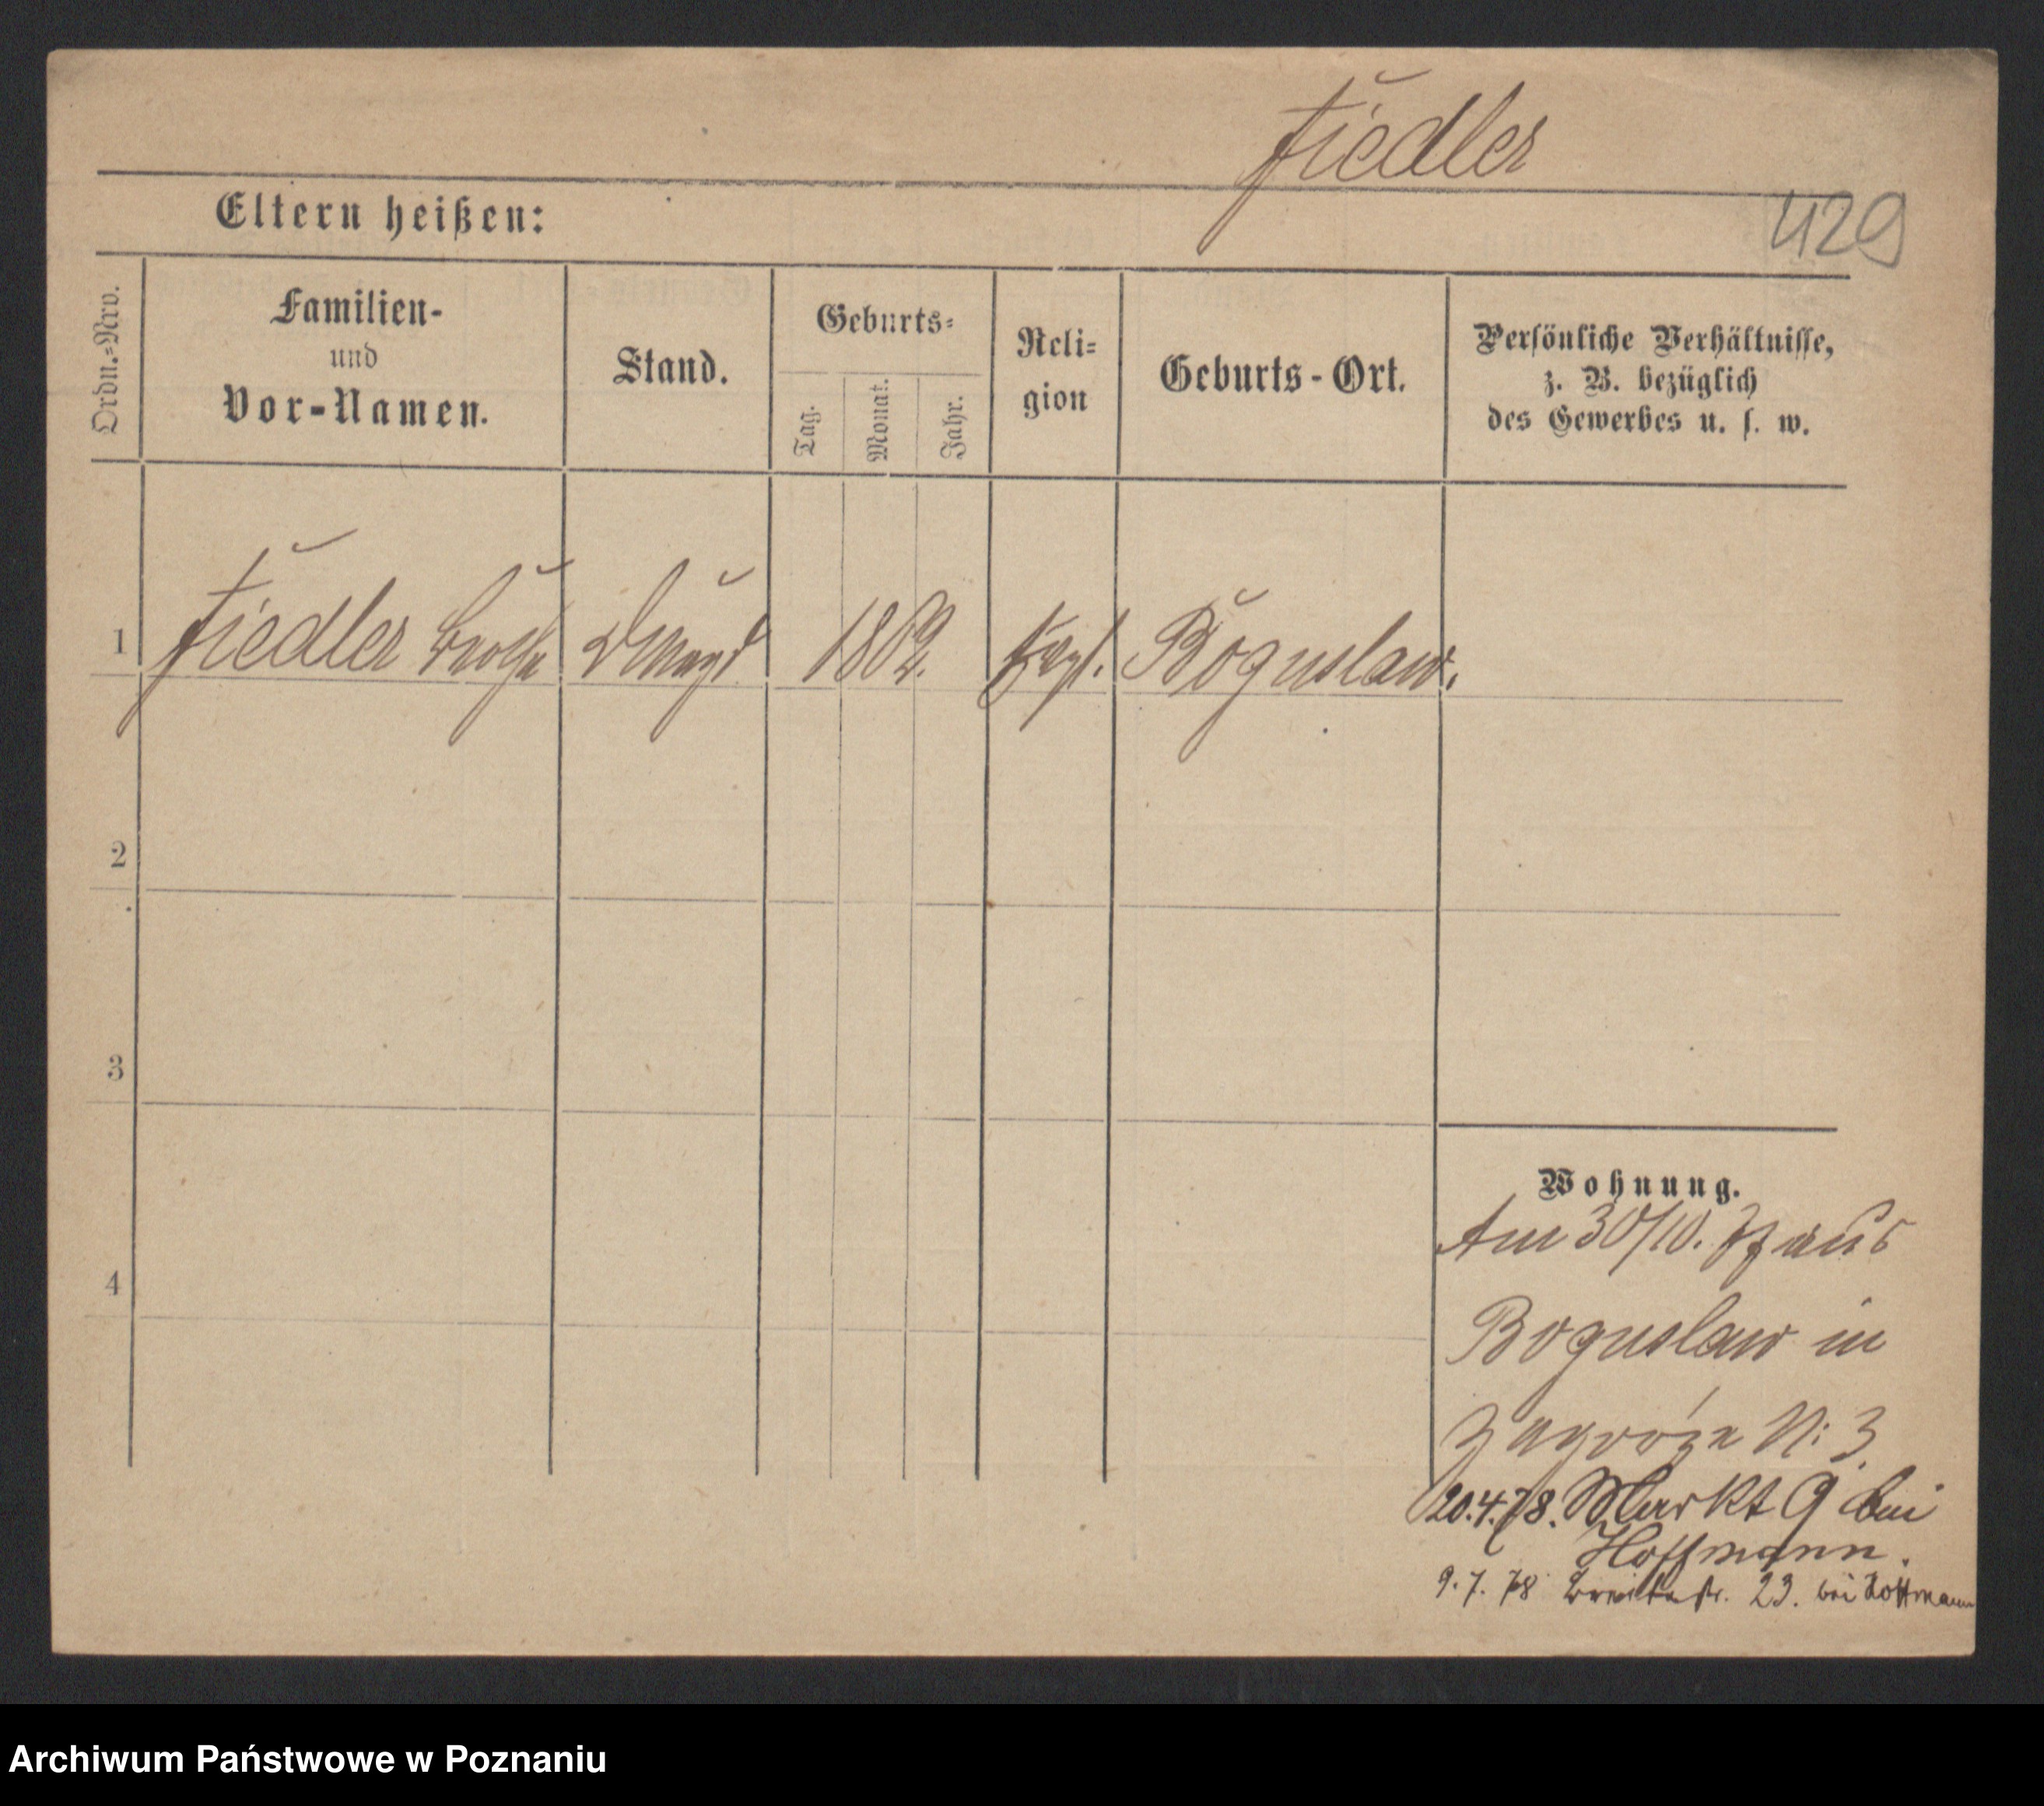 Fiedler
429
Eltern heißen:
Ordn.=Nro.
Familien-
und
Vor-Namen.
Stand.
Geburts=
Tag.
Monat.
Jahr.
Reli=
gion
Geburts-Ort.
Persönliche Verhältnisse,
z. B. bezüglich
des Gewerbes u. s. w.
1 Fiedler Bertha 186 Boguslaw.
2
3
4
Wohnung.
Am 30/10. aus
Boguslaw in
Zagróże N: 3
20.4.78. Markt 9 bei
Hoffmann.
9.7.78 Breitestr. 23. bei Hoffmann
Archiwum Państwowe w Poznaniu